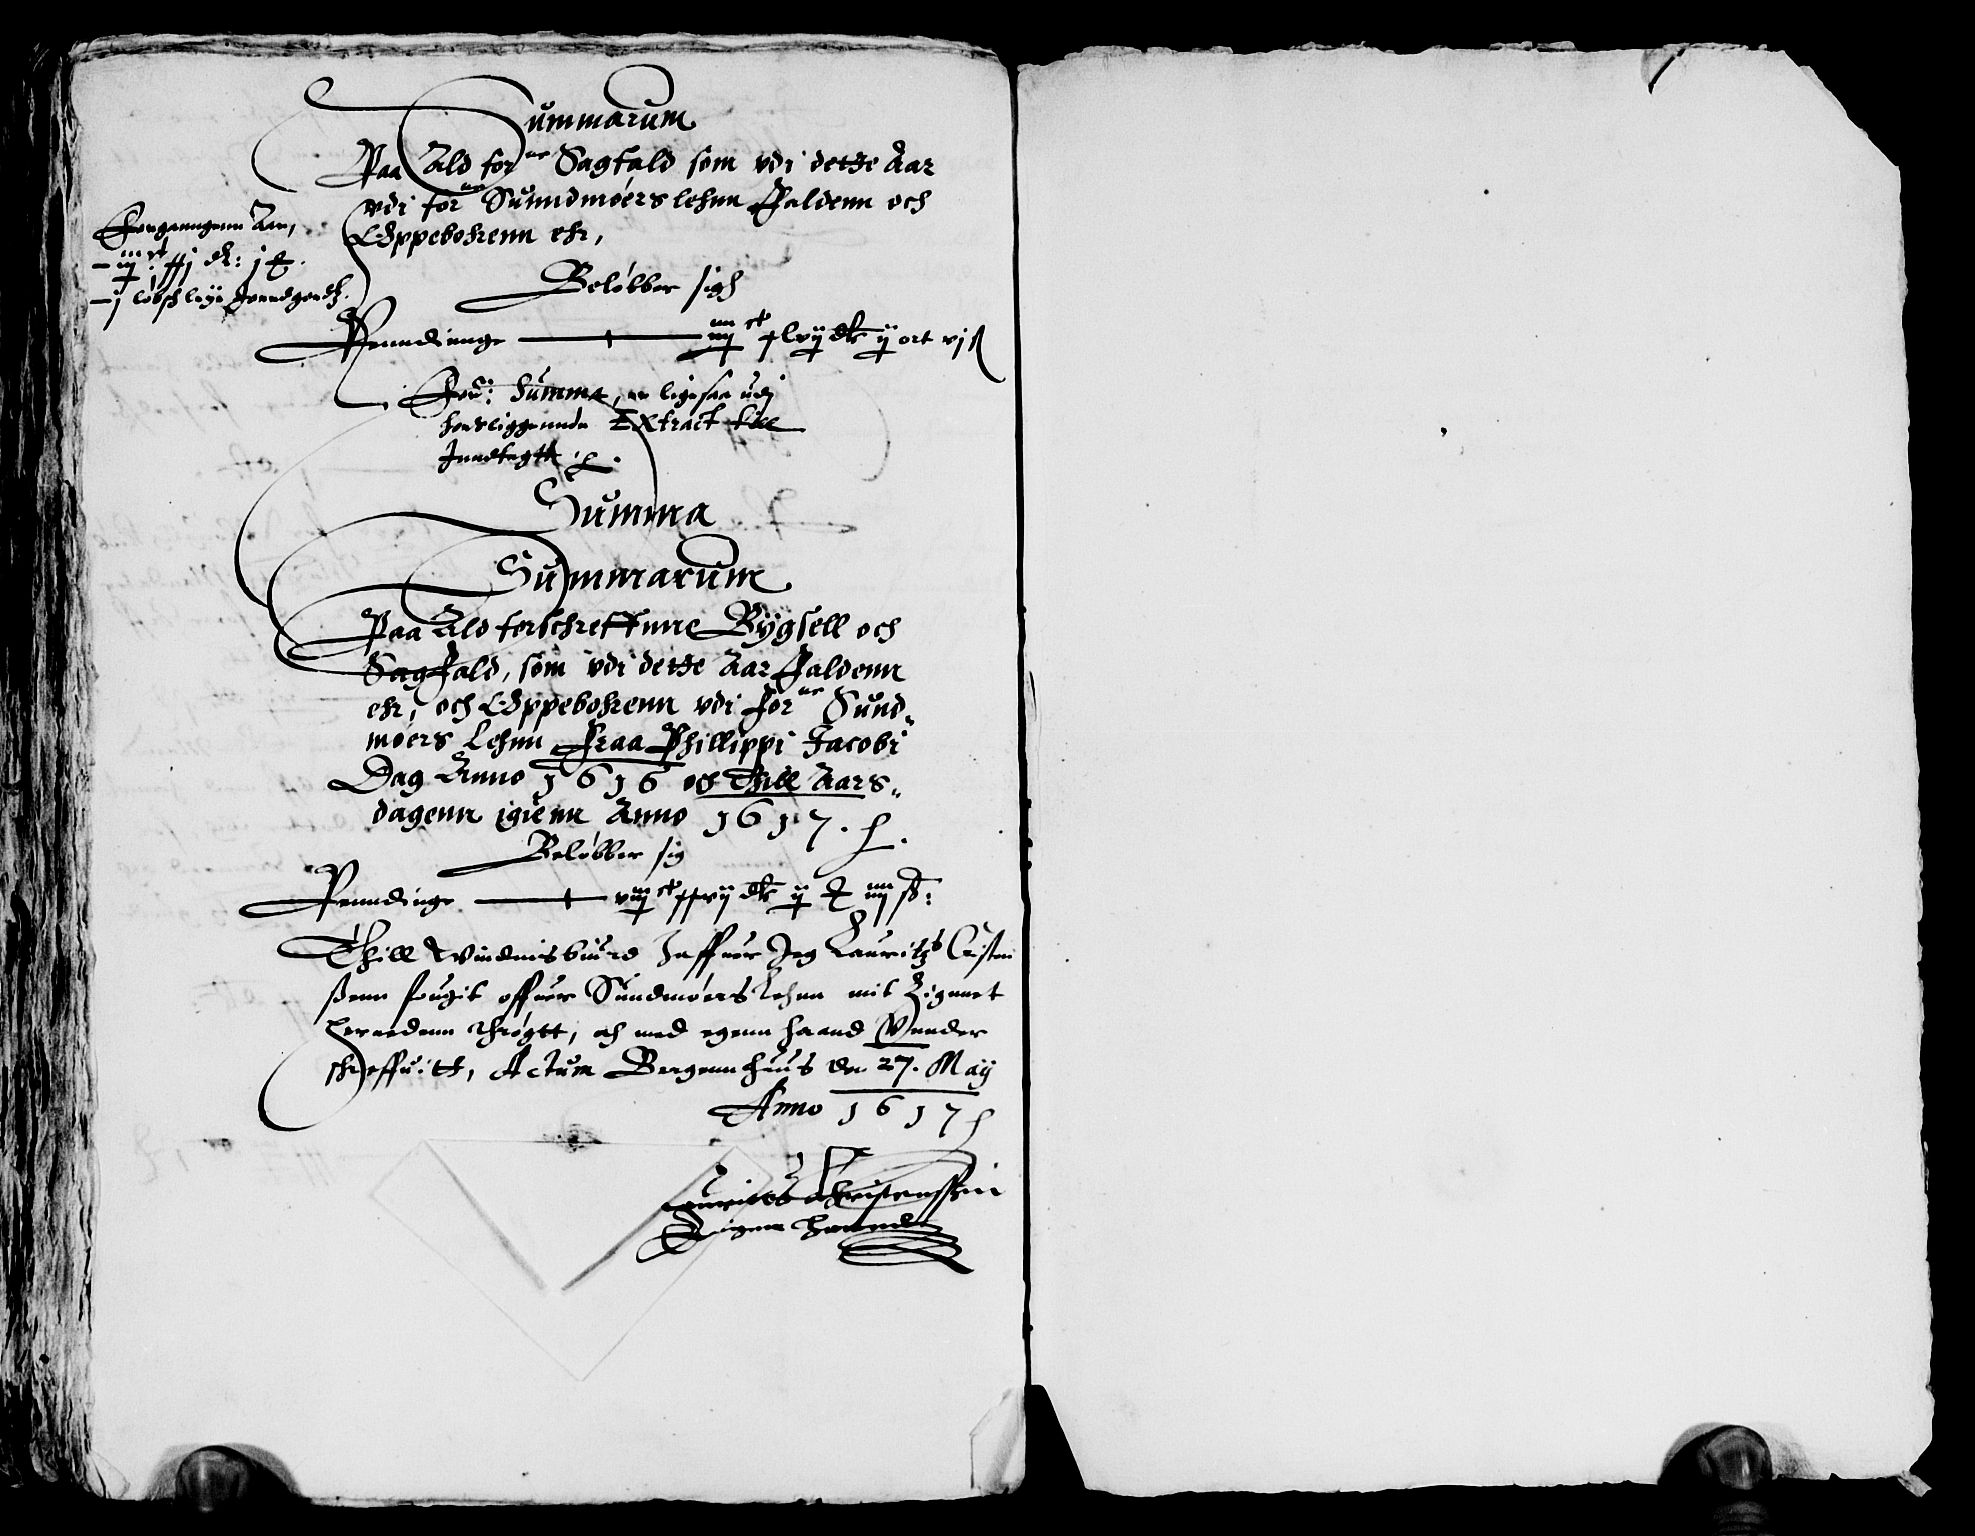 Summarum
Paa Ald for.ne Sagfald som vdi dette Aar
vdi for.ne Sundmøers lehnn Faldenn och
Oppebohrenn ehr,
Forganngenn Aar,
Beløbber sigh
Penndinnge
ij ort vj ß
For.ne Summa, er ligesaa udj
hosliggennde Extract till
Inndtegtt
Summa
Summarum
Paa Ald forschreffnne Bygsell och
Sagfald, som vdi dette Aar Faldenn
ehr, och Oppebohrenn vdi for.ne Sund-
møers Lehnn Fraa Phillippi Jacobi
Dag Anno 1616 och Thill Aars-
dagenn igienn Anno 1617.
Beløbber sig
Penndinge
Thill Windnisbiurd haffuer Jeg Lauritz Cristen
ßenn fougit offuer Sundmøers Lehnn mit Zignnet
herneedenn thrøgtt, och med egenn haand Vnnder
schreffuitt, Actum Bergennhuus den 27. May
Anno 1617
Lauritzs Christenssenn
Eigenn haannd